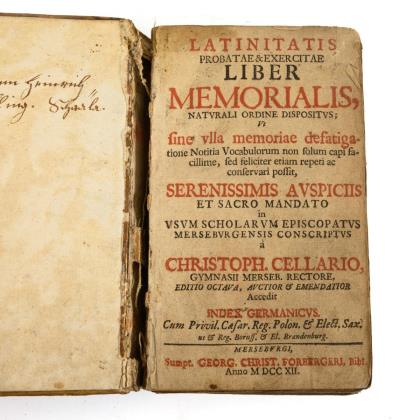 Heinrich
LATINITATIS
PROBATAE & EXERCITAE
LIBER
MEMORIALIS,
NATVRALI ORDINE DISPOSITVS;
Vt
sine vlla memoriae defatiga-
tione Notitia Vocabulorum non solum capi fa-
cillime, sed feliciter etiam repeti ac
conservari possit,
SERENISSIMIS AVSPICIIS
ET SACRO MANDATO
in
VSVM SCHOLARVM EPISCOPATVS
MERSEBVRGENSIS CONSCRIPTVS
à
CHRISTOPH. CELLARIO,
GYMNASII MERSEB. RECTORE,
EDITIO OCTAVA, AVCTIOR & EMENDATIOR
Accedit
INDEX GERMANICVS.
Cum Privil. Cæsar. Reg. Polon. & Elect. Sax.
ut & Reg. Boruss. & El. Brandenburg.
MERSEBVRGI,
Sumpt. GEORG. CHRIST. FORBERGERI, Bibl.
Anno M DCC XII.